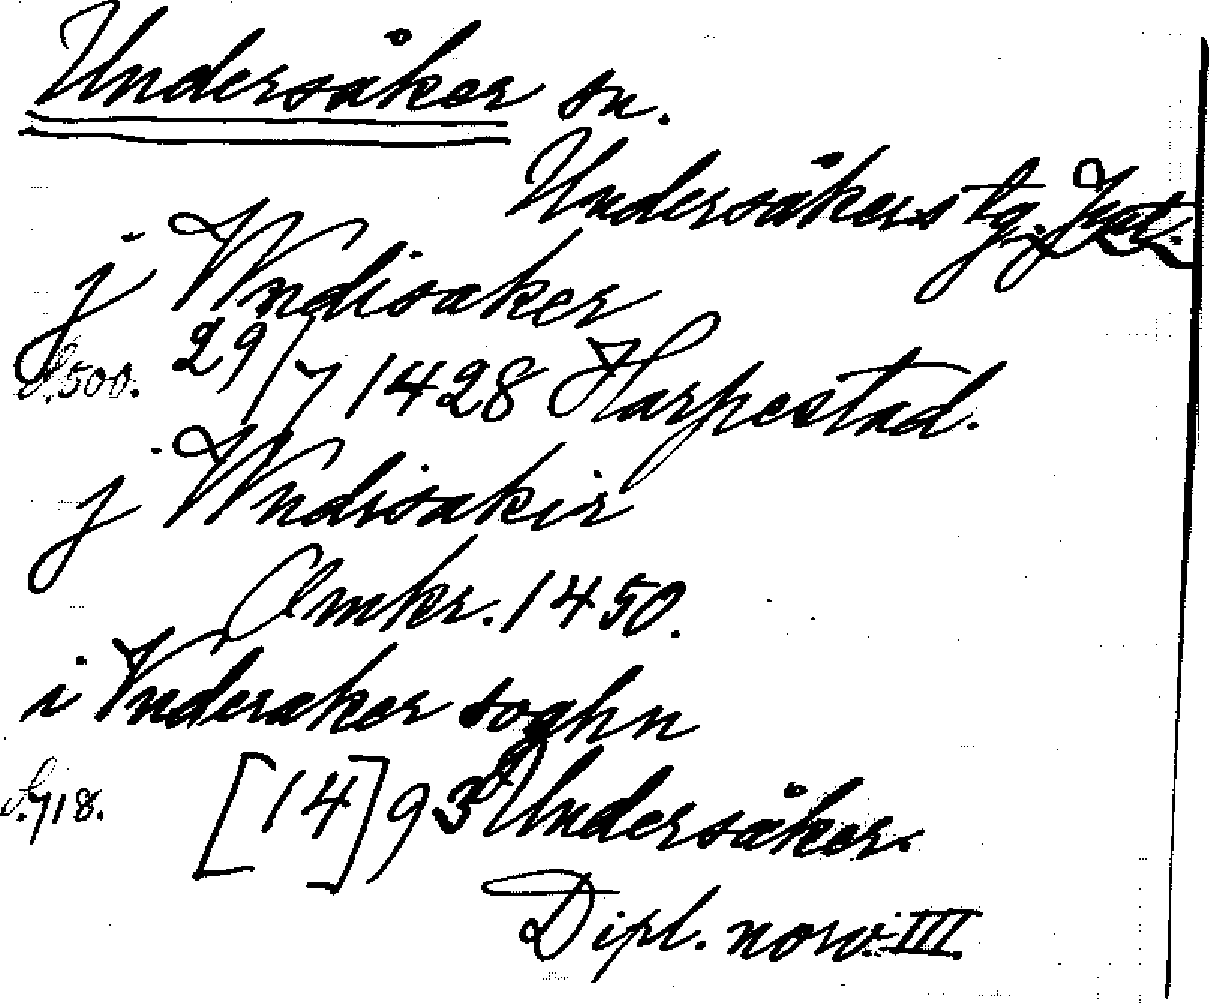 Undersåker sn.
Undersåkers tg. Jmtl.
j Wndisaker
S. 500. 29/7 1428 Harpestad.
j Wndisakir
Omkr. 1450.
i Vnderaker soghn
S. 718. [14]93 Undersåker.
Dipl. norv. III.